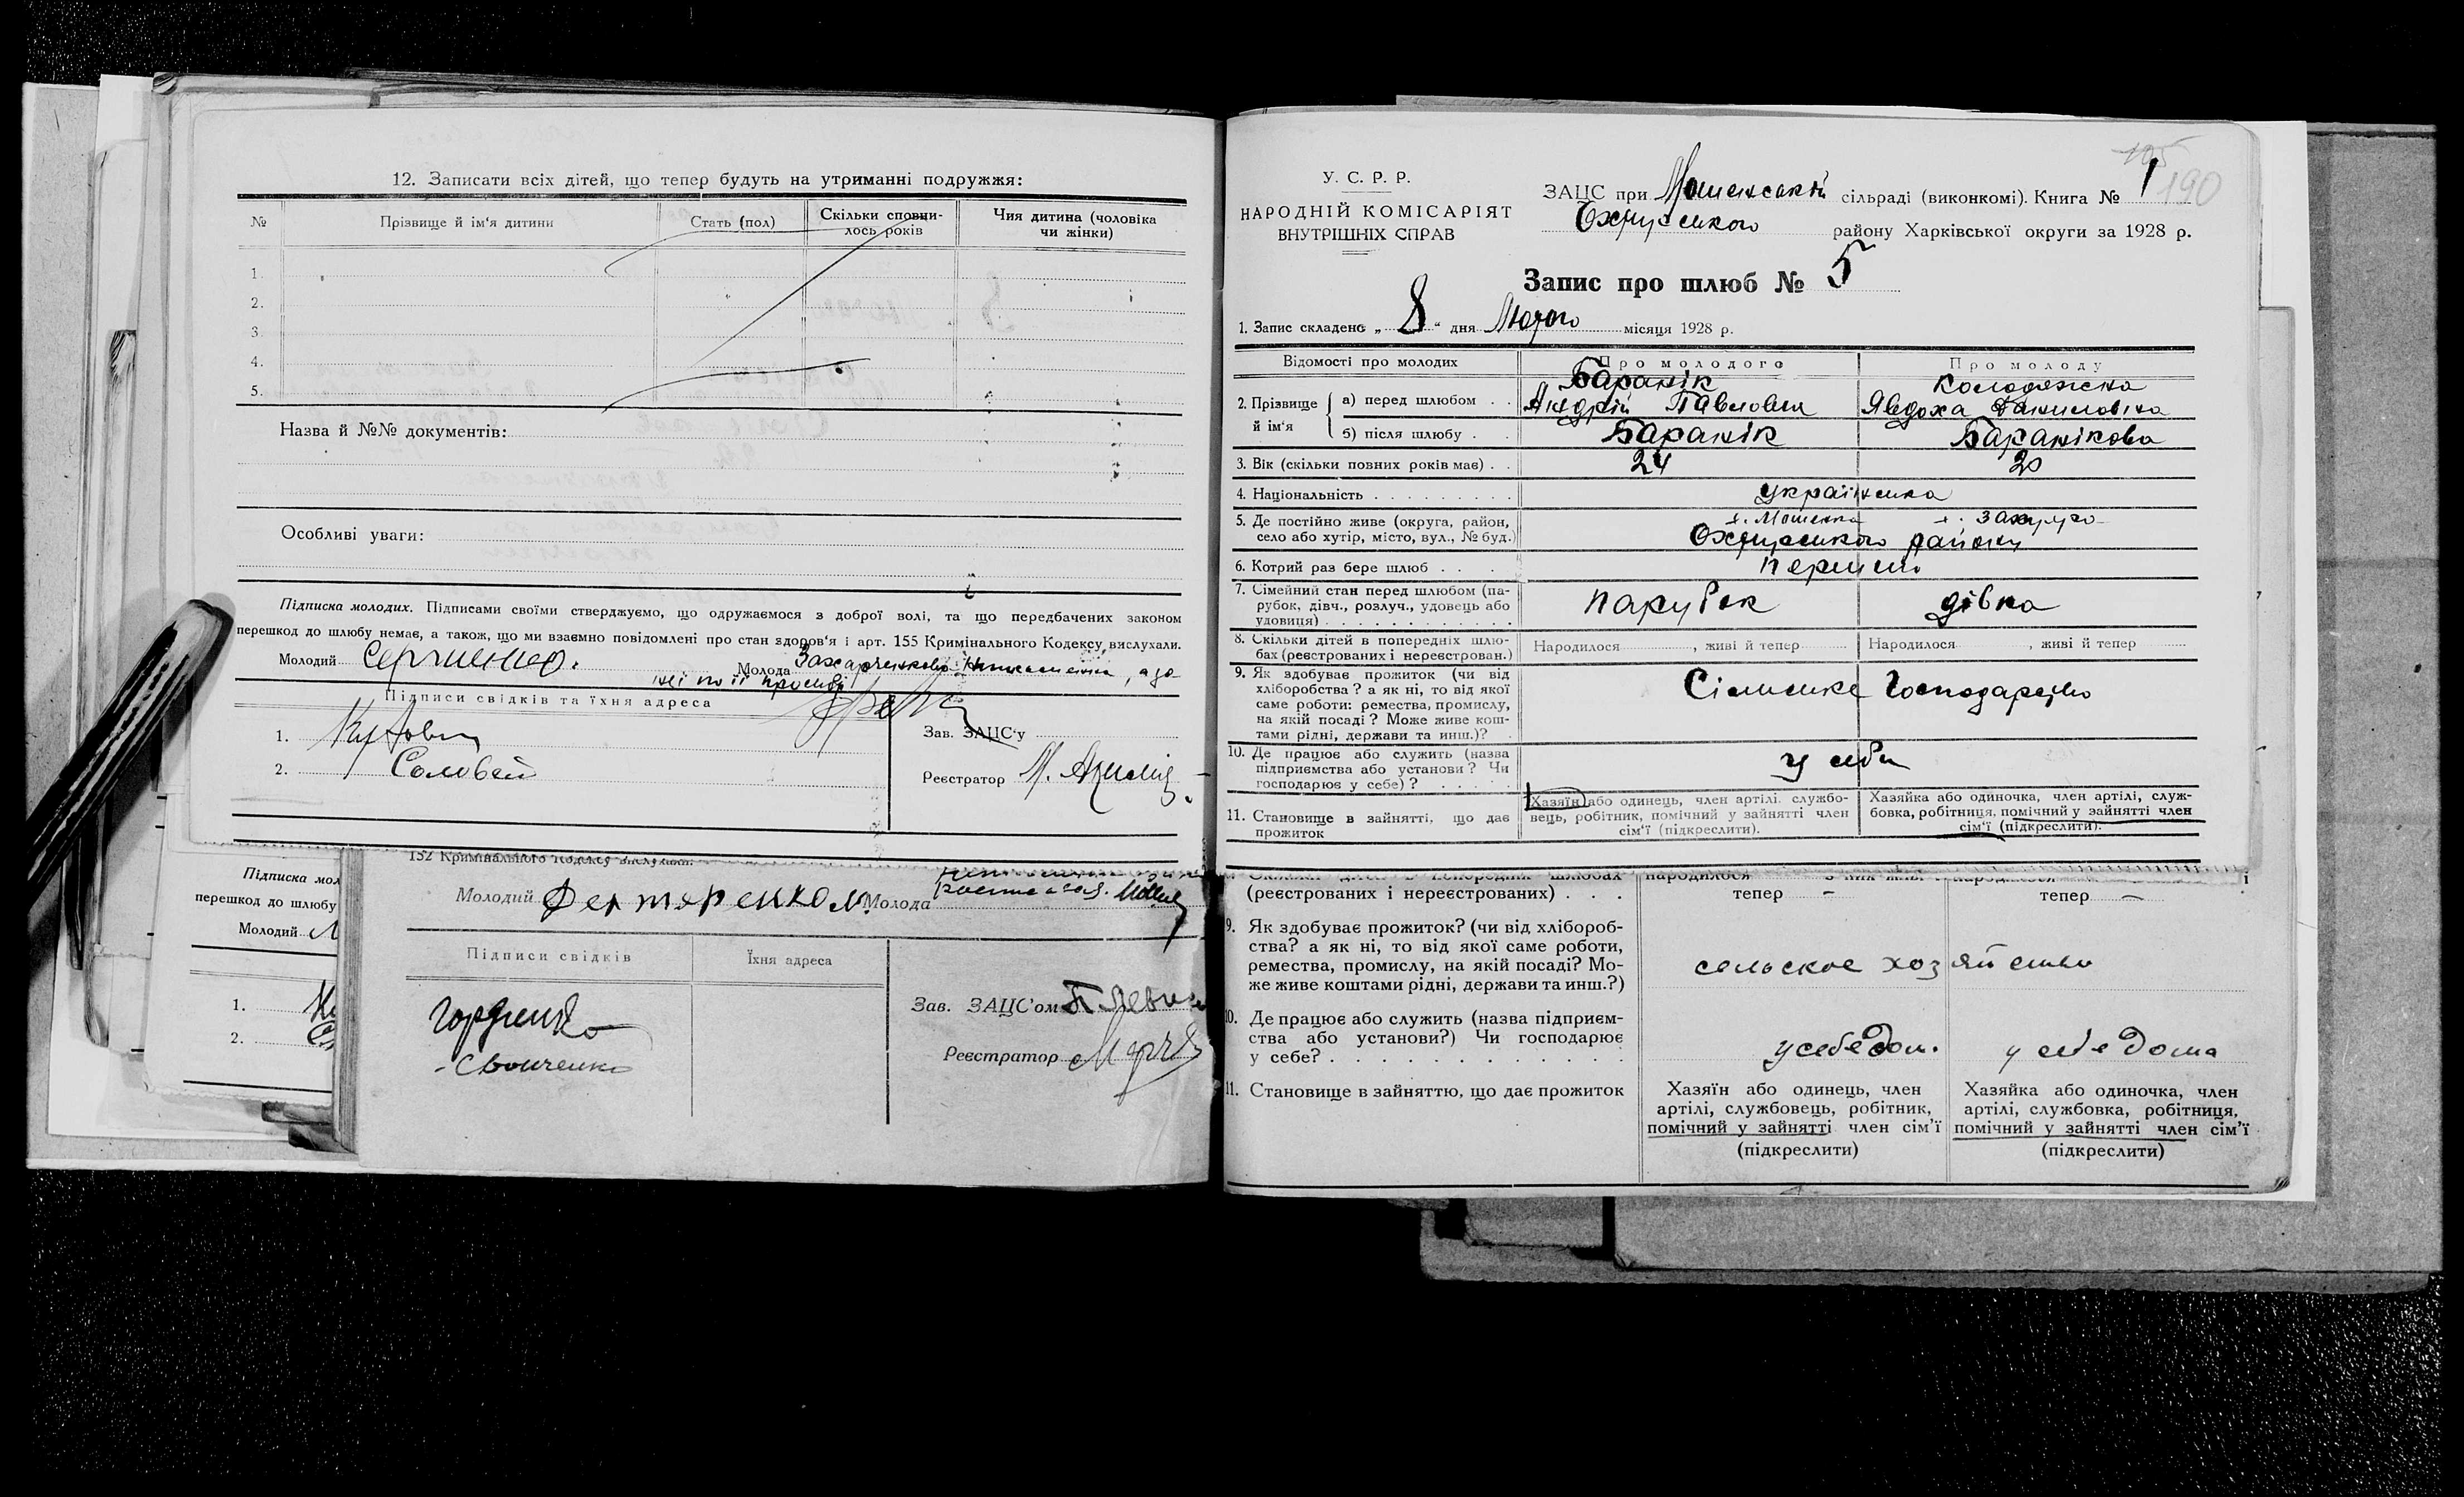 12. Записати всіх дітей, що тепер будуть на утриманні подружжя:
№ Прізвище й ім'я дитини Стать (пол) Скільки сповни-лось років Чия дитина (чоловіка чи жінки)
1.
2.
3
4.
5.
Назва й №№ документів:
Особливі уваги:
Підписка молодих. Підписами своїми стверджуємо, що одружаємося з доброї волі, та що передбачених законом
перешкод до шлюбу немає, а також, що ми взаємно повідомлені про стан здоров'я і арт. 155 Кримінального Кодексу вислухали.
Молодий Молода Захарченкова , а за
неї по її просьбі
Підписи свідків та їхня адреса
1.
2. Соловей
Зав. ЗАЦС'у
Реєстратор М.
152 Кримінального Кодексу вислухали.
Молодий Молода
Підписи свідків Їхня адреса
Гордиенко
Зав. ЗАЦС'ом
Реєстратор
Підписка мол
перешкод до шлюбу
Молодий
1.
2.
У. С. Р. Р.
НАРОДНІЙ КОМІСАРІЯТ
ВНУТРІШНІХ СПРАВ
105
190
ЗАЦС при Мошенській сільраді (виконкомі). Книга № 1
району Харківської округи за 1928 р.
Запис про шлюб № 5
1. Запис складено „ 8 “ дня Лютого місяця 1928 р.
Відомості про молодих Про молодого Про молоду
2. Прізвище й ім'я
а) перед шлюбом . . Баранік Андрій Павлович Колодяжна Явдоха Даниловна
б) після шлюбу . Баранік Баранікова
3. Вік (скільки повних років має) . . 24 20
4. Національність . . . . . . . . . українська
5. Де постійно живе (округа, район,
село або хутір, місто, вул., № буд.) х. Мошенка х.
району
6. Котрий раз бере шлюб . . . .
7. Сімейний стан перед шлюбом (па-
рубок, дівч., розлуч., удовець або
удовиця) . . . . . . . . . . . . парубок дівка
8. Скільки дітей в попередніх шлю-
бах (реєстрованих і нереєстрован.) Народилося , живі й тепер Народилося , живі й тепер
9. Як здобуває прожиток (чи від
хліборобства? а як ні, то від якої
саме роботи: ремества, промислу,
на якій посаді? Може живе кош-
тами рідні, держави та инш.)? Сільське Господарство
10. Де працює або служить (назва
підприємства або установи? Чи
господарює у себе)? . . . . . у себе
11. Становище в зайнятті, що дає
прожиток
Хазяїн або одинець, член артілі, службо-
вець, робітник, помічний у зайнятті член
сім'ї (підкреслити).
Хазяйка або одиночка, член артілі, служ-
бовка, робітниця, помічний у зайнятті член
сім'ї (підкреслити).
(реєстрованих і нереєстрованих) . . . тепер – тепер –
9. Як здобуває прожиток? (чи від хлібороб-
ства? а як ні, то від якої саме роботи,
ремества, промислу, на якій посаді? Мо-
же живе коштами рідні, держави та инш.?) сельское хозяйство
10. Де працює або служить (назва підприєм-
ства або установи?) Чи господарює
у себе? . . . . . . . . . . . . у себе дом. у себе дома
11. Становище в зайняттю, що дає прожиток
Хазяїн або одинець, член
артілі, службовець, робітник,
помічний у зайнятті член сім'ї
(підкреслити)
Хазяйка або одиночка, член
артілі, службовка, робітниця,
помічний у зайнятті член сім'ї
(підкреслити)